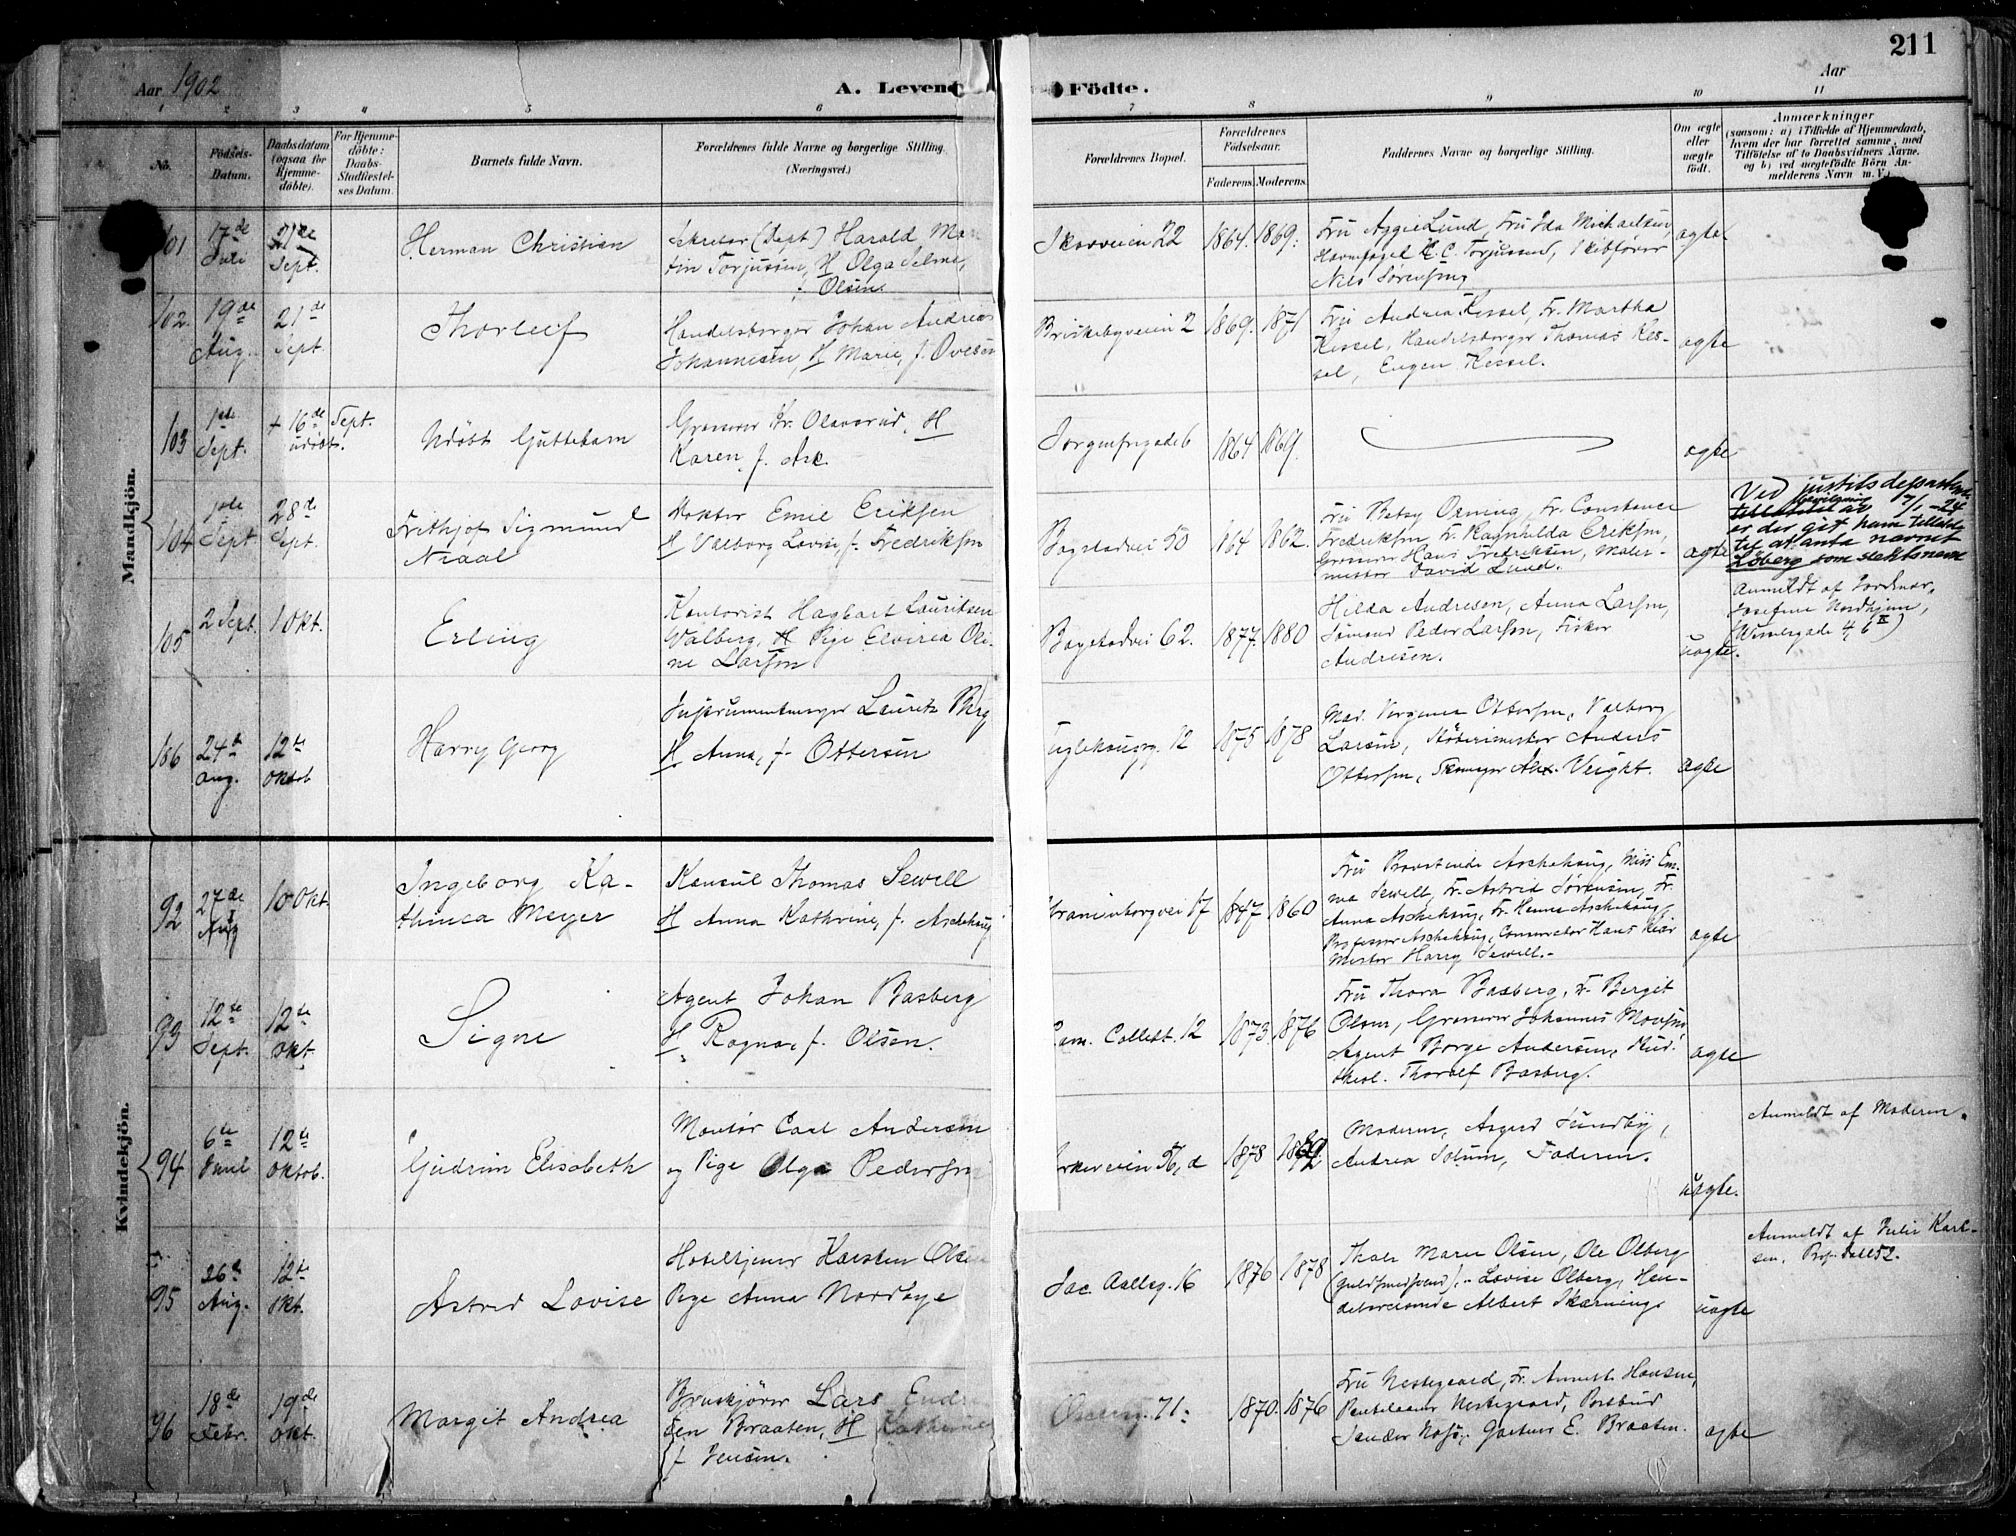 211
Aar 1902
A. Leven
Födte.
Aar
1 2 3 4 5 6 7 8 9 10 11
No.
Födsels-
Datum.
Daabsdatum
(ogsaa for
Hjemme-
döbte).
For Hjemme-
döbte:
Daabs-
Stadfæstel-
ses Datum.
Barnets fulde Navn.
Forældrenes fulde Navne og borgerlige Stilling.
(Næringsvei.)
Forældrenes Bopæl.
Forældrenes
Födselsaar.
Faderens. Moderens.
Faddernes Navne og borgerlige Stilling.
Om ægte
eller
uægte
födt.
Anmærkninger
(saasom: a) i Tilfælde af Hjemmedaab,
hvem der har forrettet samme, med
Tilföielse af to Daabsvidners Navne.
og b) ved uægtefödte Börn An-
melderens Navn m. V.).
Mandkjön.
101
17de
Juli
21de
Sept.
Herman Christian
Sekretær (Dept) Harald Mar
tin Torjussen, H Olga Selma,
f. Olsen.
Skovveien 22
1864. 1869.
Fru Aggie Lund, Fru Ida Michaelsen,
Havnefoged C. C. Torjussen, Skibsfører
Nils Sørensen
ægte
102.
19de
Aug.
21de
Sept.
Thorleif
Handelsborger Johan Andreas
Johannesen, H Marie, f. Ovesen
Briskebyveien 2
1869. 1871
Fru Andrea Kessel, Fr. Martha
Kessel, Handelsborger Thomas Kes-
sel, Eugen Kessel.
ægte
103
1ste
Sept.
+ 16de Sept.
udøbt.
Udøbt Guttebarn
Grosserer Kr. Olavsrud, H
Karen, f. Ask
Sorgenfrigade 6
1864 1869.
ægte
104
1ste
Sept.
28de
Sept.
Frithjof Sigmund
Neaal
Doktor Emil Eriksen
H Valborg Lovise f. Fredriksen
Bogstadvei 50
1864 1862.
Fru Betsy Orning, Fr. Constance
Fredriksen, Fr. Ragnhilda Eriksen,
Grosserer Hans Fredriksen, Maler-
mester David Lund.
ægte
Ved justitsdepartem.
bevilgning 17/1-24
er der git ham tilladelse
til at anta navnet
Löberg som slektsnavn
105
2 Sept.
1 Okt.
Erling
Kontorist Hagbart Lauritsen
Valberg, Pige Elvirea Oli-
ne Larsen
Bogstadvei 62.
1877. 1880
Hilda Andresen, Anna Larsen,
Sømand Peder Larsen, Fisker
Andresen.
uægte.
Anmeldt af Jordmor
Josefine Nordhjem,
(Wesselsgade 4, 6 II)
106
24de
Aug.
12te
Oktob
Harry Georg
Instrumentmager Lauritz Berg
H Anna, f. Ottersen
12
1875 1878
Mad. Vergenia Ottersen, Valborg
Larsen, Støberimester Anders
Ottersen, Skomager Alex. Veight.
ægte
Kvindekjön.
92
27de
Aug
10 Okt.
Ingeborg Ka-
thinca Meyer
Konsul Thomas Sewell
H Anna Kathrine, f. Aschehoug
ranienborgvei 17
1847 1860
Fru Provstinde Aschehoug, Miss Em-
ma Sewell, Fr. Astrid Sørensen, Fr.
Anna Aschehoug, Fr. Hanna Aschehoug,
Professor Aschehoug, Conservator Hans Kiær
Mester Harry Sewell.-
ægte
93
12te
Sept.
12te
Okt.
Signe
Agent Johan Basberg
H Ragna, f. Olsen.
Cam. Collett. 12
1873 1876
Fru Thora Basberg, Fr. Bergit
Olsen, Grosserer Johannes
Agent Borge Andersen, Stud.
Thoralf Basberg.
ægte
94
6te
12te
Oktob.
Gudrun Elisabeth
Montør Carl Andersen
og Pige Olga Pedersen
56, d
1878
Moderen, Asgerd Sundby,
Andrea Solum, Faderen.
uægte.
Anmeldt af Moderen.
95
26de
Aug.
12te
Okt.
Astrid Lovise
Hoteltjener Karsten Olsen
Pige Anna Nordbye
Jac. Aallsg. 16
1876 1878
Thora Marie Olsen, Ole Olberg
(guldsmedsvend), Lovise Olberg, Han-
delsreisende Albert Skarning.
uægte
Anmeldt af Julie Karl-
sen, Prof. Dall 52.
96
18de
Febr.
19de
Okt.
Margit Andrea
Bruskjører Lars Endre
sen Braaten, H Kathrine
f Jensen.
71.
1870. 1876
Fru Nestegaard, Fr. Annette Hansen,
Nestegaard, Postbud
Sander Gartner E. Braaten.
ægte